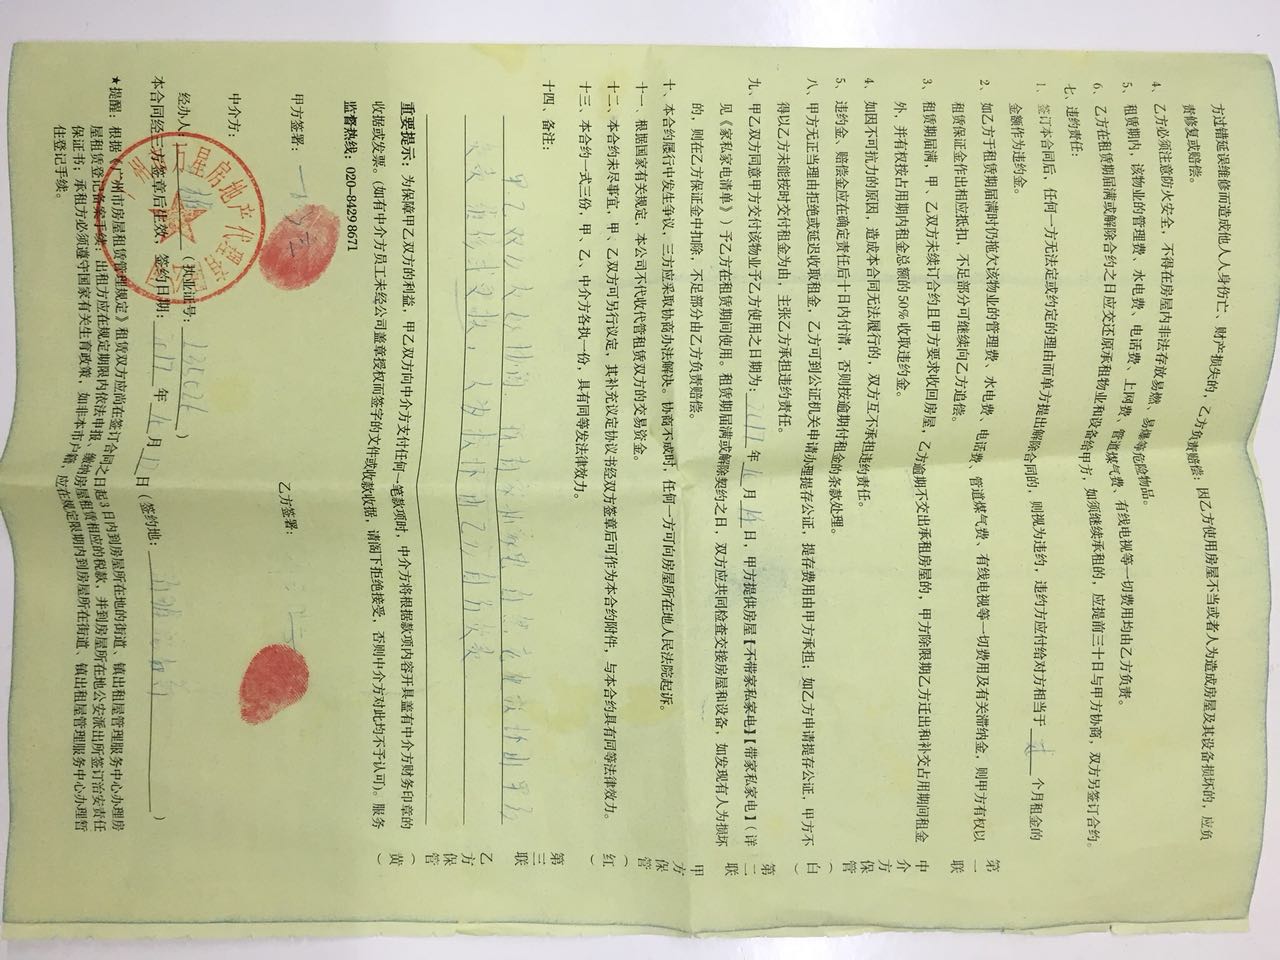 方过错延误维修而造成他人人身伤亡、财产损失的，乙方负责赔偿；因乙方使用房屋不当或者人为造成房屋及其设备损坏的，应负
责修复或赔偿。
4、乙方必须注意防火安全，不得在房屋内非法存放易燃、易爆等危险物品。
5、租赁期内，该物业的管理费、水电费、电话费、上网费、管道煤气费、有线电视等一切费用均由乙方负责。
6、乙方在租赁期届满或解除合约之日应交还原承租物业和设备给甲方，如须继续承租的，应提前三十日与甲方协商，双方另签订合约。
七、违约责任：
1、签订本合同后，任何一方无法定或约定的理由而单方提出解除合同的，则视为违约，违约方应付给对方相当于 个月租金的
金额作为违约金。
2、如乙方于租赁期届满时仍拖欠该物业的管理费、水电费、电话费、管道煤气费、有线电视等一切费用及有关滞纳金，则甲方有权以
租赁保证金作出相应抵扣，不足部分可继续向乙方追偿。
3、租赁期届满，甲、乙双方未续订合约且甲方要求收回房屋，乙方逾期不交出承租房屋的，甲方除限期乙方迁出和补交占用期间租金
外，并有权按占用期内租金总额的50%收取违约金。
4、如因不可抗力的原因，造成本合同无法履行的，双方互不承担违约责任。
5、违约金、赔偿金应在确定责任后十日内付清，否则按逾期付租金的条款处理。
八、甲方无正当理由拒绝或延迟收取租金，乙方可到公证机关申请办理提存公证，提存费用由甲方承担；如乙方申请提存公证，甲方不
得以乙方未能按时交付租金为由，主张乙方承担违约责任。
九、甲乙双方同意甲方交付该物业予乙方使用之日期为：2017年 月14日，甲方提供房屋【不带家私家电】【带家私家电】（详
见《家私家电清单》）予乙方在租赁期间使用。租赁期届满或解除契约之日，双方应共同检查交接房屋和设备，如发现有人为损坏
的，则在乙方保证金中扣除，不足部分由乙方负责赔偿。
十、本合约履行中发生争议，三方应采取协商办法解决。协商不成时，任何一方可向房屋所在地人民法院起诉。
十一、根据国家有关规定，本公司不代收代管租赁双方的交易资金。
十二、本合约未尽事宜，甲、乙双方可另行议定，其补充议定协议书经双方签章后可作为本合约附件，与本合约具有同等法律效力。
十三、本合约一式三份，甲、乙、中介方各执一份，具有同等发法律效力。
十四、备注：
甲乙双方友好协商，所有家私家电自然老化损坏由甲方
负责维修或更换，人为损坏由乙方自行负责
重要提示：为保障甲乙双方的利益，甲乙双方向中介方支付任何一笔款项时，中介方将根据款项内容开具盖有中介方财务印章的
收据或发票。(如有中介方员工未经公司盖章授权而签字的文件或收款收据，请阁下拒绝接受，否则中介方对此均不予认可)。服务
监督热线：020-8429 8671
甲方签署：
乙方签署：
中介方：
经办人： （执业证号：235026）
本合同经三方签章后生效，签约日期：2017年 月12日（签约地： ）
★提醒：根据《广州市房屋租赁管理规定》租赁双方应尚在签订合同之日起3日内到房屋所在地的街道、镇出租屋管理服务中心办理房
屋租赁登记备案手续；出租方应在规定期限内依法申报、缴纳房屋租赁相应的税款，并到房屋所在地公安派出所签订治安责任
保证书；承租方必须遵守国家有关生育政策，如非本市户籍，应在规定限期内到房屋所在街道、镇出租屋管理服务中心办理暂
住登记手续。
第一联 中介方保管（白） 第二联 甲方保管（红） 第三联 乙方保管（黄）
房地产代理有限公司